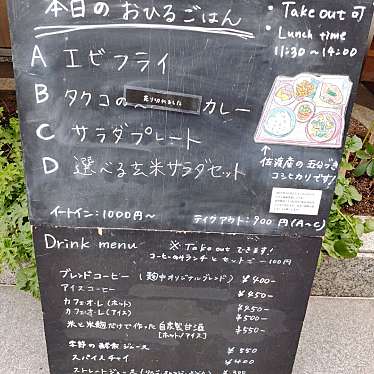 本日のおひるごはん
・Take out 可
・Lunch time
11:30～14:00
A エビフライ
B タケコの 売り切れました カレー
C サラダプレート
D 選べる玄米サラダセット
佐渡産の五分づき
コシヒカリです!
イートイン:1000円～
テイクアウト:900円(A~C)
Drink menu ※Take out できます!
コーヒーのみランチとセットで-100円
ブレンドコーヒー(麹中オリジナルブレンド) ¥400-
アイスコーヒー ¥450-
カフェオ・レ(ホット) ¥450-
カフェオ・レ(アイス) ¥500-
米と米麹だけで作った自家製甘酒 ¥550-
[ホット/アイス]
季節の酵素ジュース ¥550
スパイスチャイ ¥400
ストレートジュース